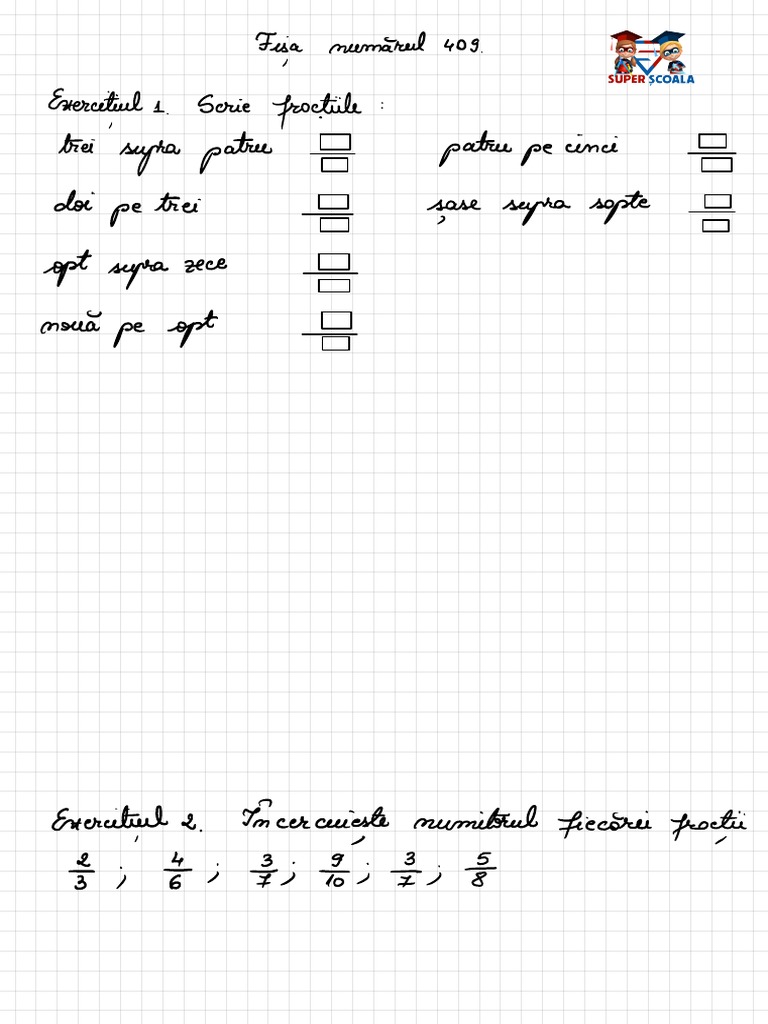 Fișa numărul 409.
SUPER ȘCOALA
Exercițiul 1. Scrie fracțiile :
trei supra patru patru pe cinci
doi pe trei șase supra sapte
opt supra zece
nouă pe opt
Exercițiul 2. Încercuiește numitorul fiecărei fracții
2/3 ; 4/6 ; 3/7 ; 9/10 ; 3/7 ; 5/8